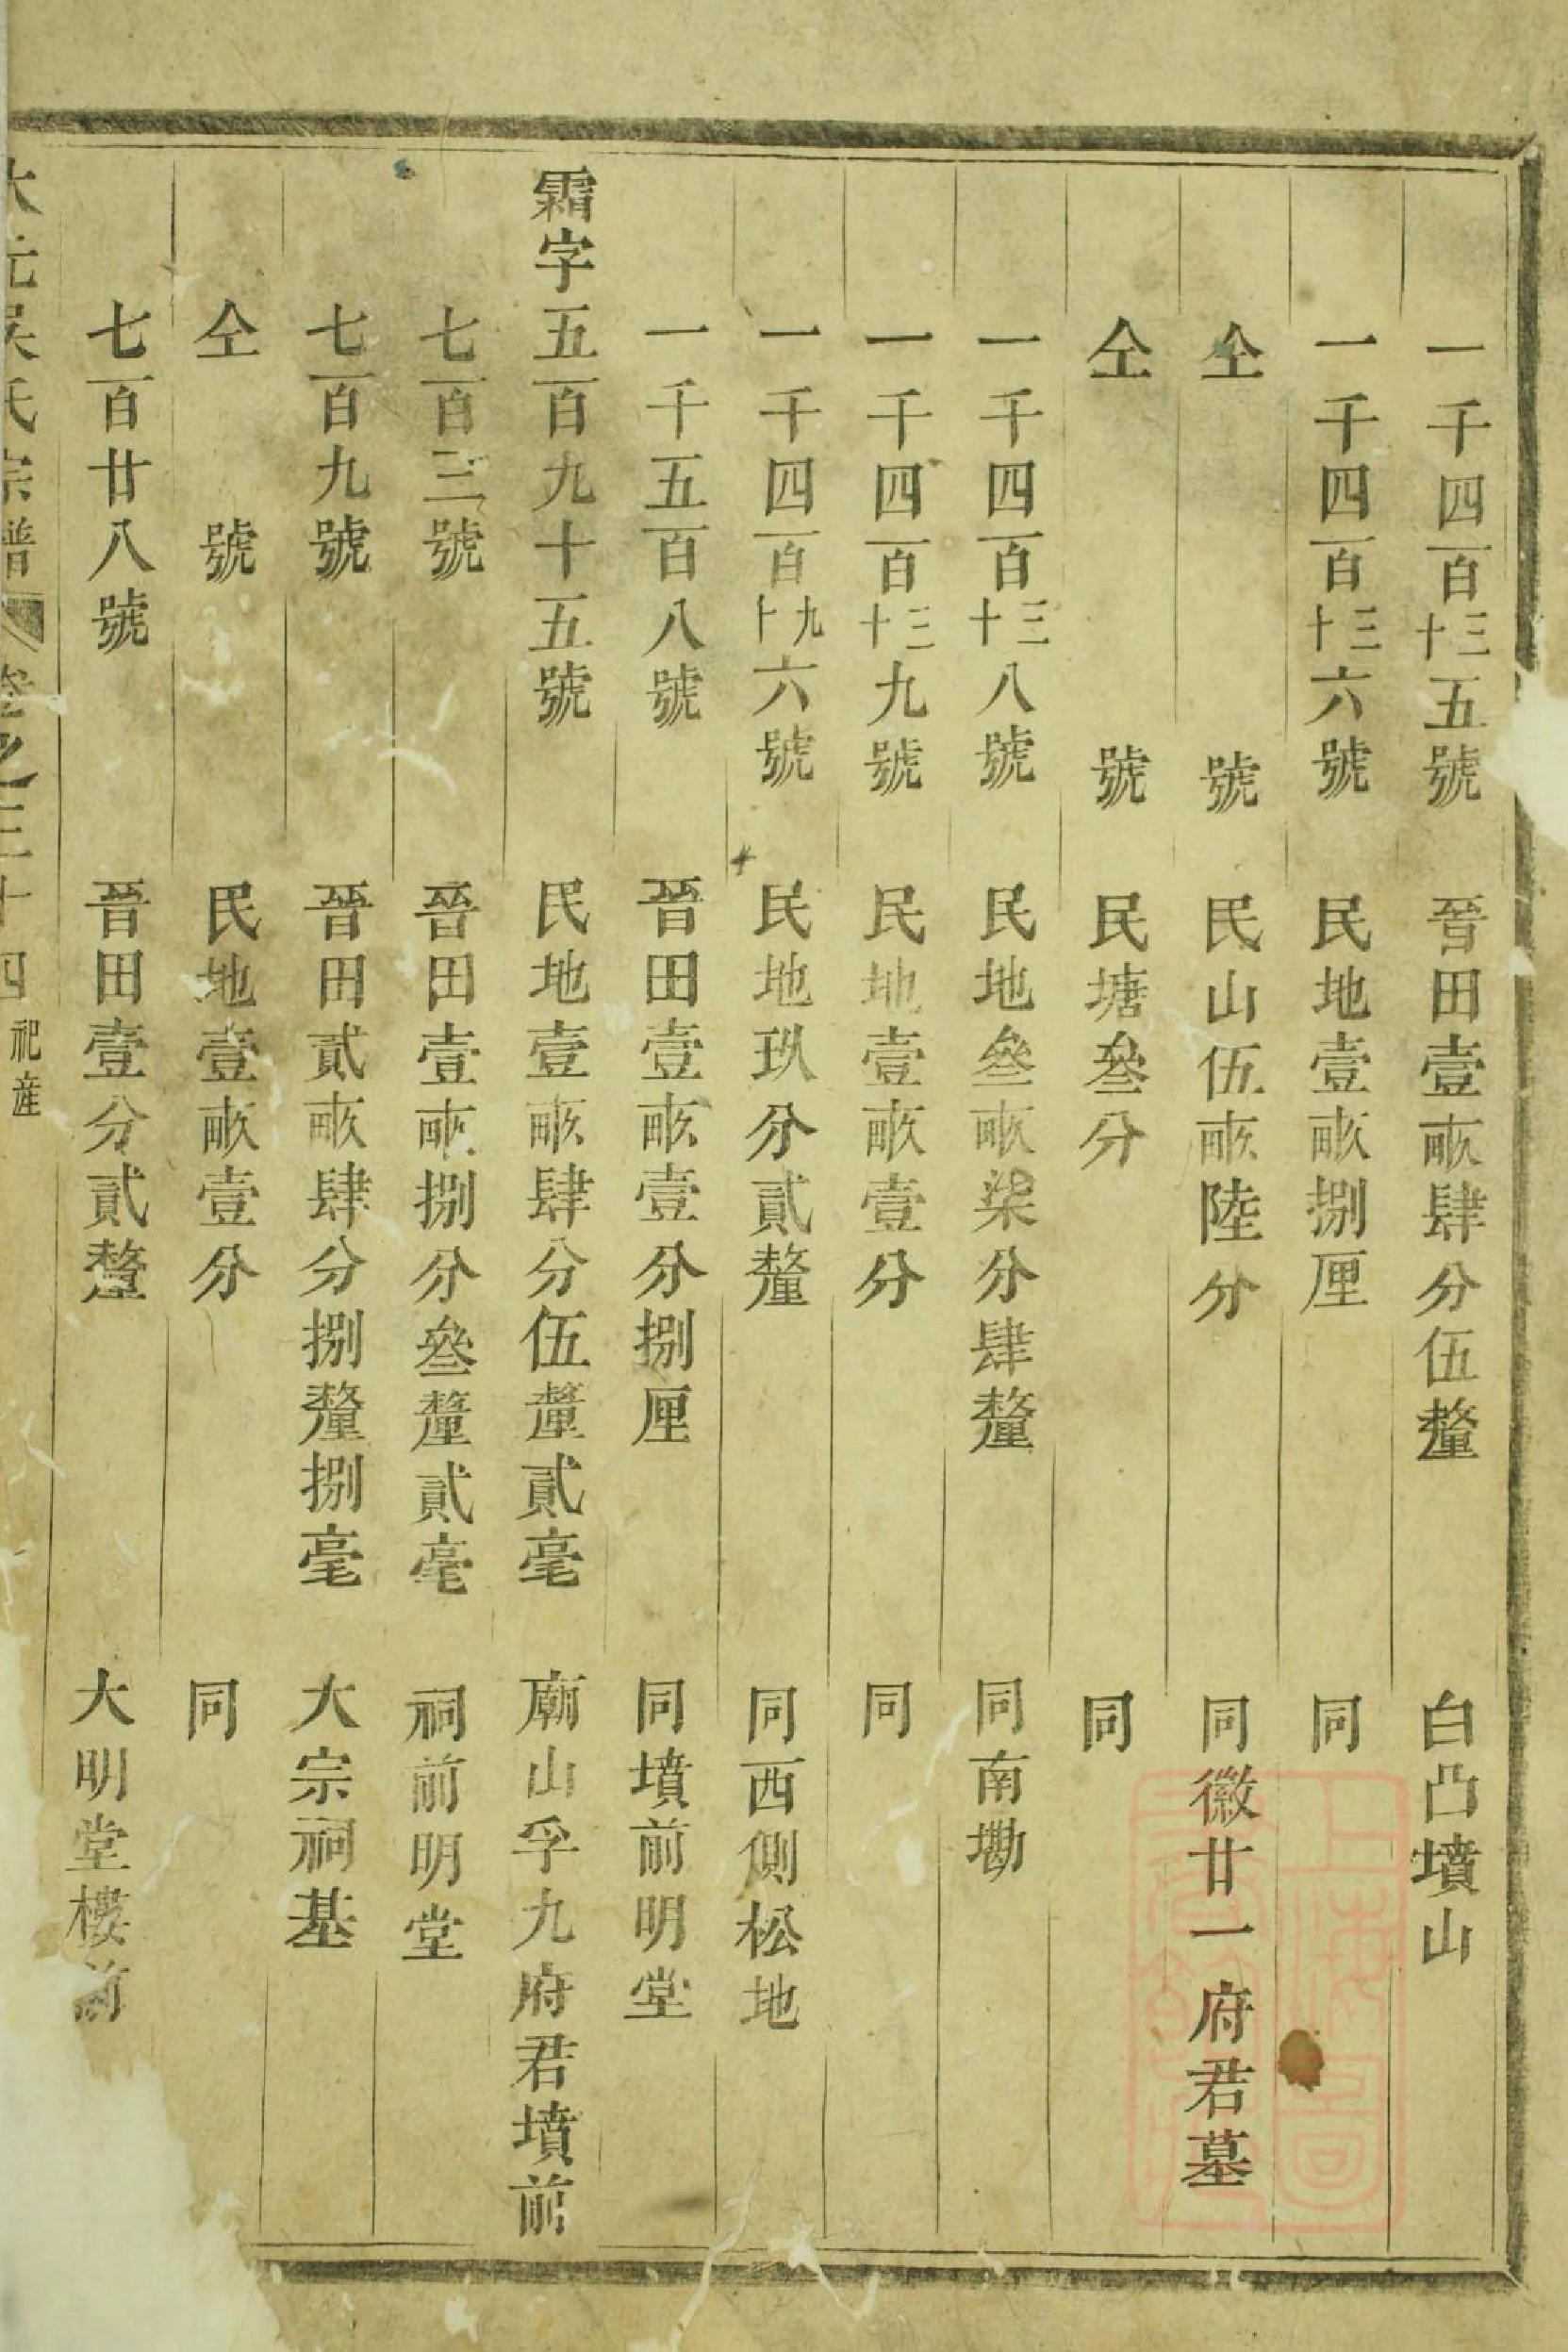 一千四百三十五號 晉田壹畝肆分伍釐 白凸墳山
一千四百三十六號 民地壹畝捌厘 同
仝號 民山伍畝陸分 同徽廿一府君墓
仝號 民塘叄分 同
一千四百三十八號 民地叄畝柒分肆釐 同南墈
一千四百三十九號 民地壹畝壹分 同
一千四百九十六號 民地玖分貳釐 同西側松地
一千五百八號 晉田壹畝壹分捌厘 同墳前明堂
霜字五百九十五號 民地壹畝肆分伍釐貳毫 廟山孚九府君墳前
七百三號 晉田壹畝捌分叄釐貳毫 祠前明堂
七百九號 晉田貳畝肆分捌釐捌毫 大宗祠基
仝號 民地壹畝壹分 同
七百廿八號 晉田壹分貳釐 大明堂樓前
吳氏宗譜 卷之三十四 祀産